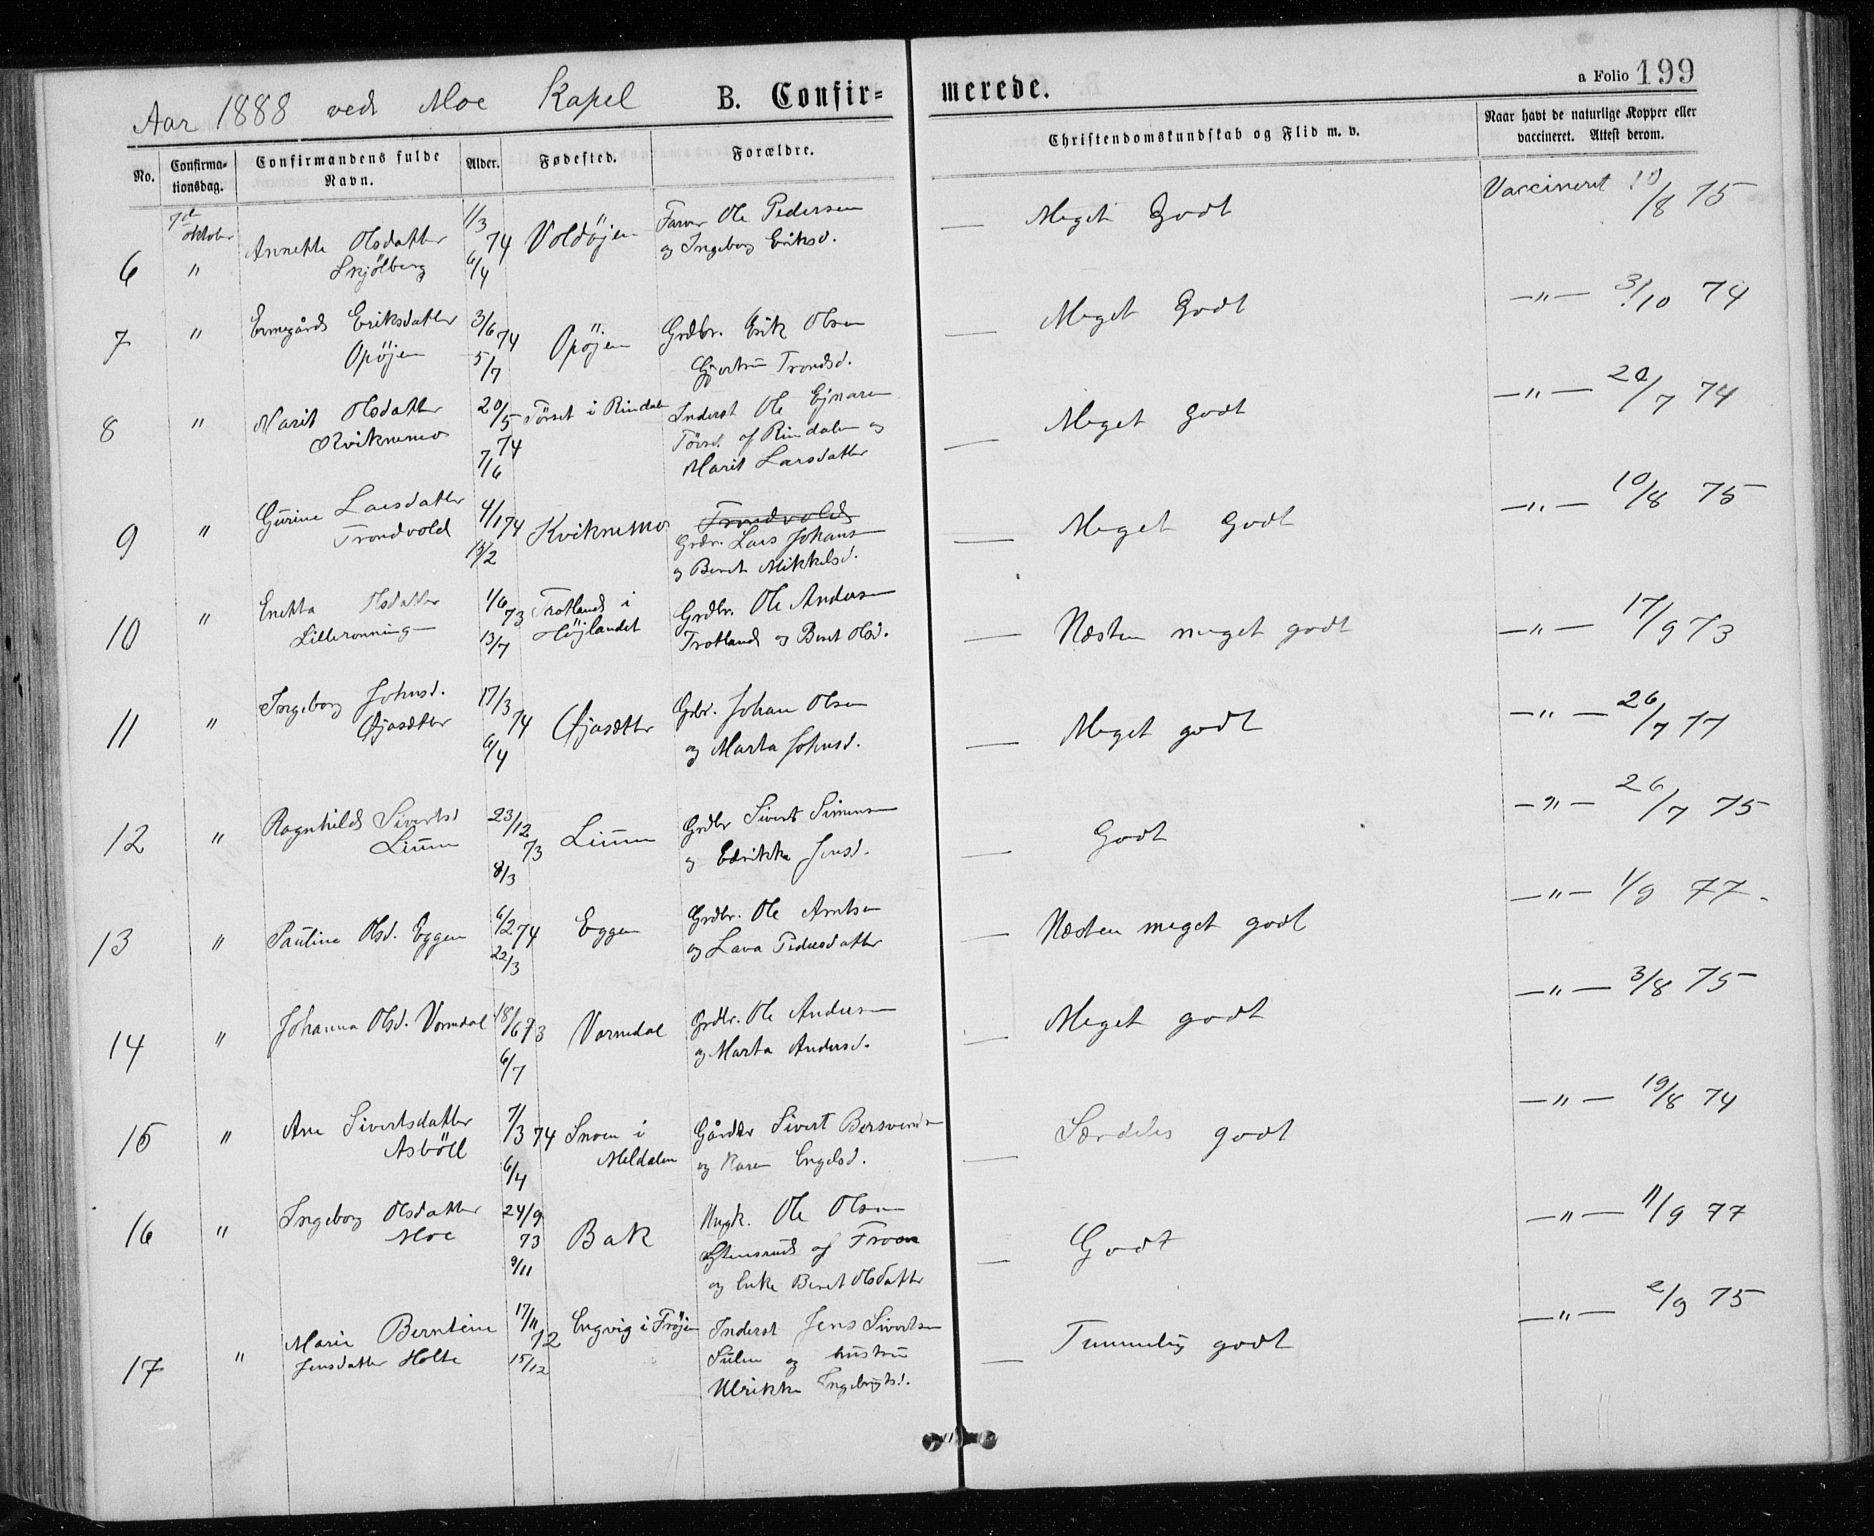 Aar 1888 ved Moe Kapel B. Confir-
merede. a Folio 199
No. Confirma-tionsdag. Confirmandens fulde Navn. Alder. Fødested. Forældre. Christendomskundskab og Flid m. v. Naar havt de naturlige Kopper eller vaccineret. Attest derom.
7de oktober
6 " Annette Olsdatter 1/3 74 Voldöjen Farver Ole Pedersen — Meget Godt Vaccineret 10/8 75
Skjölberg 6/4 og Ingeborg Eriksd.
7 " Ermegård Eriksdatter 3/6 74 Opöjen Grdbr. Erik Olsen — Meget Godt —"— 3/10 74
Opöjen 5/7 Gjertru Trondsd.
8 " Marit Olsdatter 20/5 74 Törset i Rindalen Inderst Ole Ejnarsen — Meget Godt —"— 20/7 74
Kviknemo 7/6 Törset af Rindalen og
Marit Larsdatter
9 " Gurine Larsdatter 4/1 74 Kviknemo Trondvold — Meget Godt —"— 10/8 75
Trondvold 15/2 Grdbr. Lars Johans
og Beret Mikkelsd.
10 " Enetta Olsdatter 1/6 73 Trotland i Grdbr. Ole Andersen — Næsten meget godt —"— 17/9 73
Lillerønning 13/7 Höjlandet Trotland og Beret Olsd.
11 " Ingeborg Johnsd. 17/3 74 Øjasætter Gbr. Johan Olsen — Meget godt —"— 26/7 77
Øjasætter 6/4 og Marta Johnsd.
12 " Ragnhild Sivertsd 23/12 73 Lium Grdbr Sivert Simens — Godt —"— 26/7 75
Lium 8/3 og Edrikka Jonsd.
13 " Paulina Olsd. Eggen 6/2 74 Eggen Grdbr. Ole Arntsen — Næsten meget godt —"— 1/9 77.
22/3 og Lava Pedersdatter
14 " Johanna Olsd. Vormdal 18/6 73 Vormdal Grdbr. Ole Andersen — Meget godt —"— 3/8 75
6/7 og Marta Andersd.
15 " Ane Sivertsdatter 7/3 74 Snoen i Gårdbr Sivert Bersvends — Særdeles godt —"— 19/8 74
Asböll 6/4 Meldalen og Karen Engelsd.
16 " Ingeborg Olsdatter 24/9 73 Bak Ungk. Ole Olsen — Godt —"— 11/9 77
Moe 9/11 af Troen
og Enke Beret Olsdatter
17 " Marie Berntine 17/11 72 Engvig i Fröjen Inderst Jens Sivertsen — Temmelig godt —"— 2/9 75
Jensdatter Holte 15/12 Sulen og hustru
Ulrikke Ingebrigtsd.